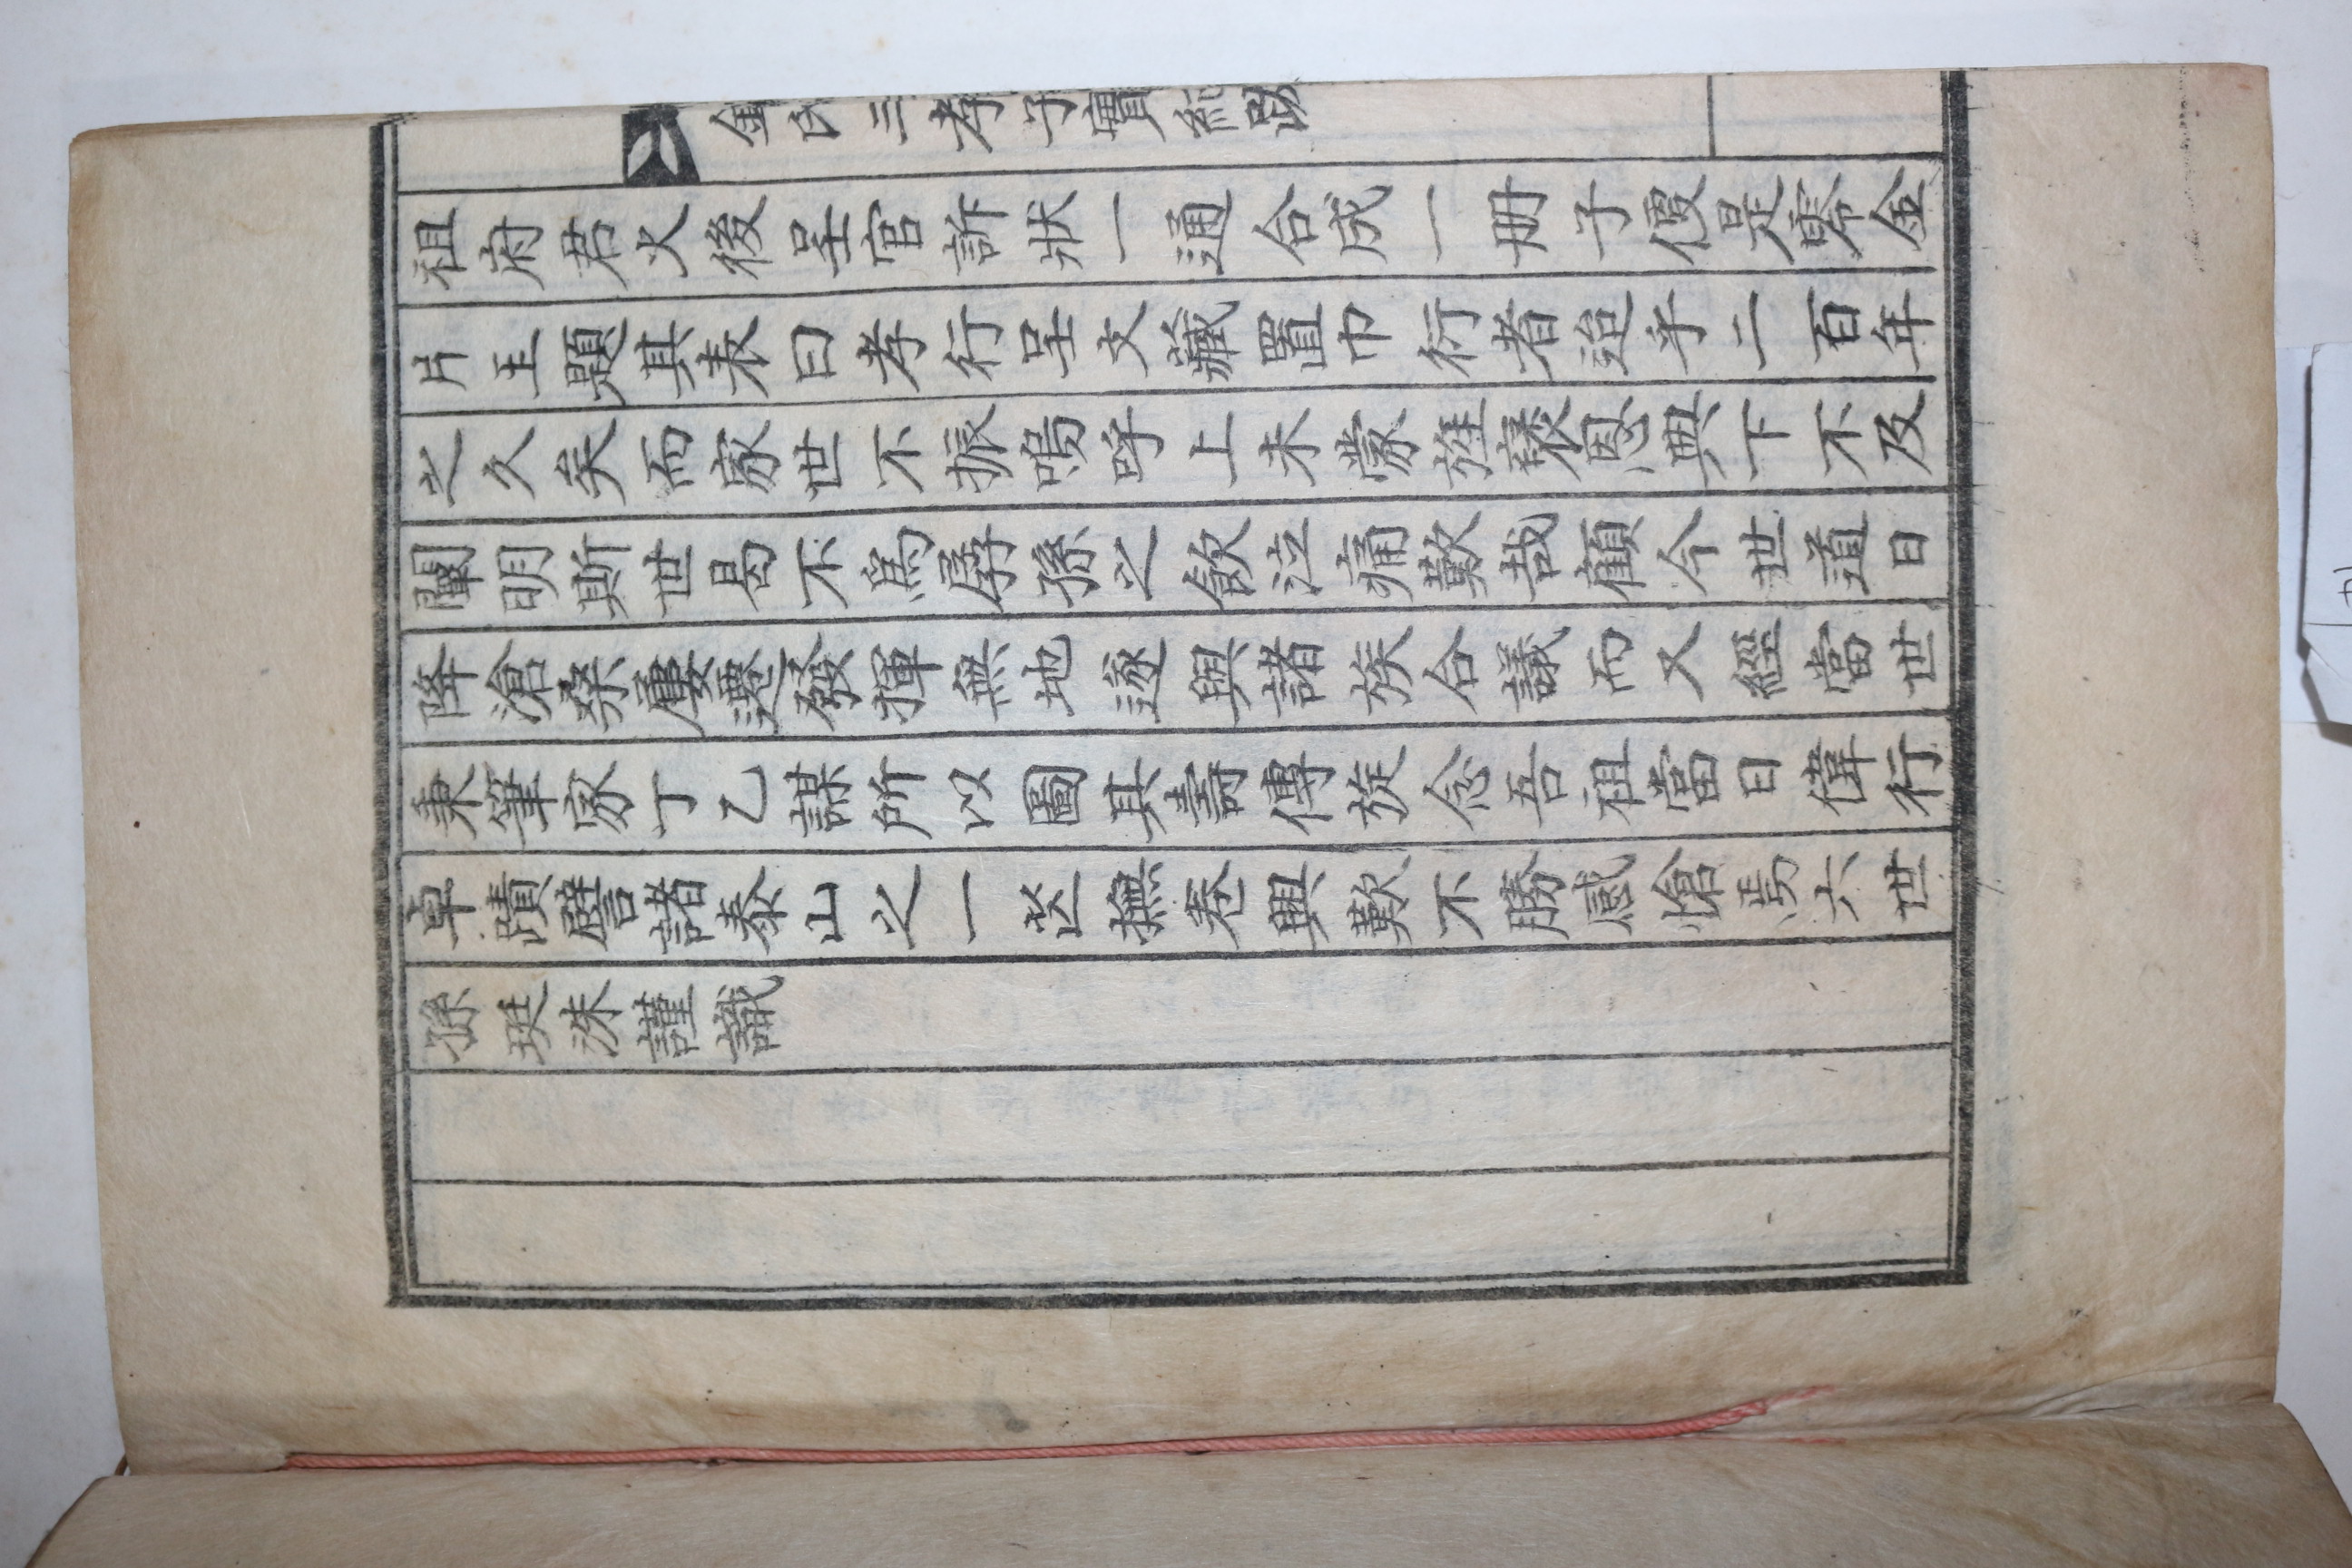 金氏三孝子實紀跋
祖府君火後呈官訴狀一通合成一册子便是零金
片玉題其表曰孝行呈文藏置巾衍者迨乎二百年
之久矣而家世不振嗚呼上未蒙旌褒恩典下不及
闡明斯世曷不爲孱孫之飮泣痛歎哉顧今世道日
降滄桑屢遷發揮無地遂與諸族合議而又經當世
秉筆家丁乙謀所以圖其壽傳旋念吾祖當日偉行
卓蹟譬諸泰山之一芒撫卷興歎不勝感愴焉六世
孫珽洙謹識